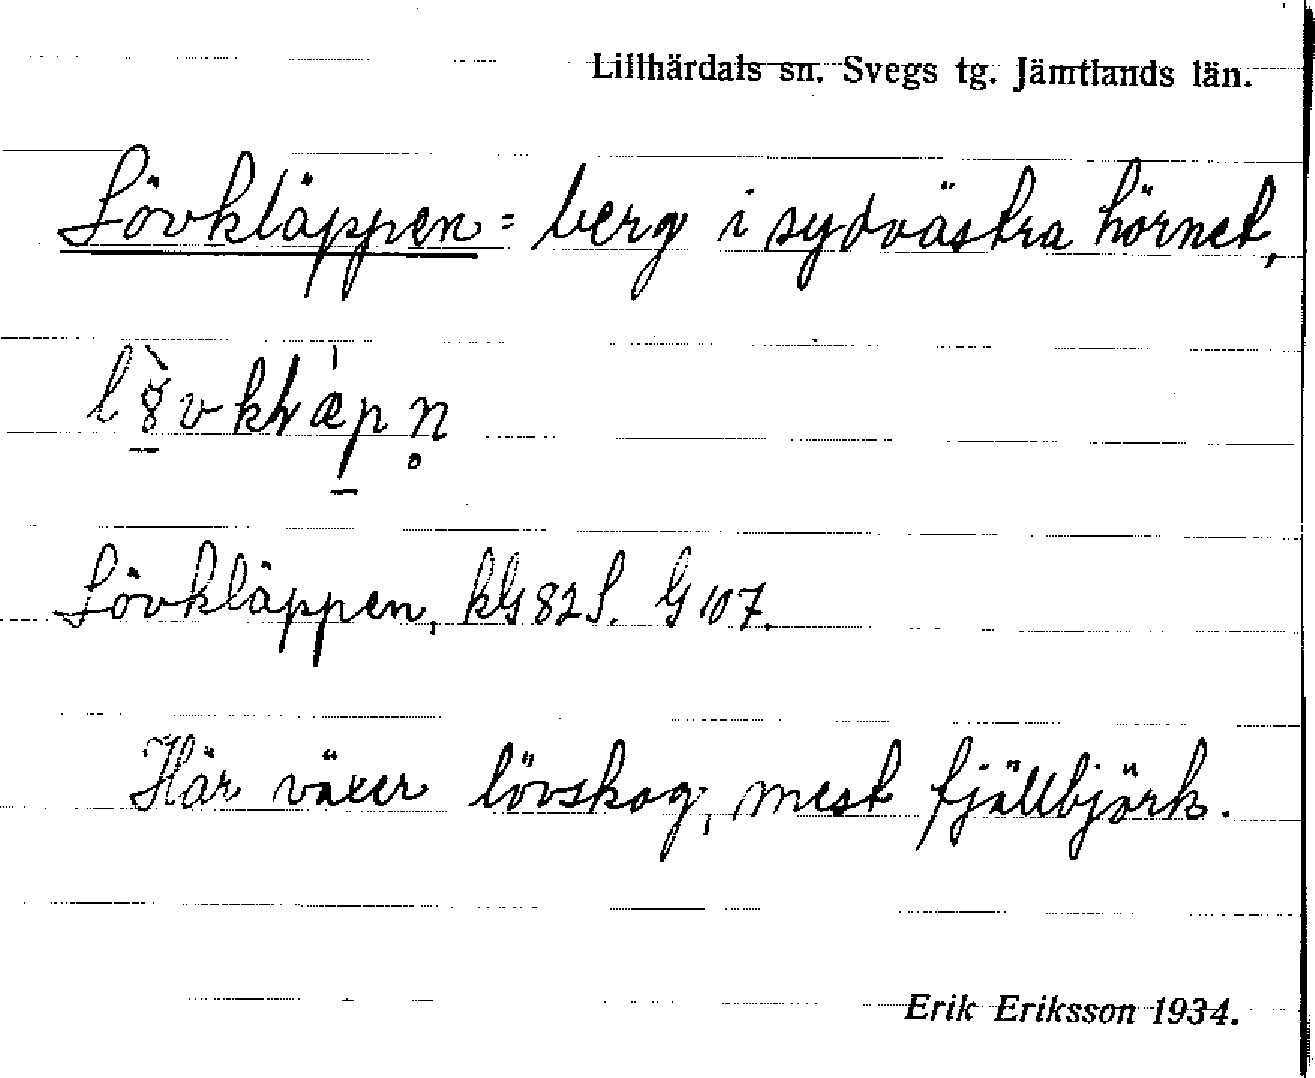 Lillhärdals sn. Svegs tg. Jämtlands län.
Lövkläppen = berg i sydvästra hörnet,
Lövkläppen, kG 82 S. G 107.
Här växer lövskog, mest fjällbjörk.
Erik Eriksson 1934.